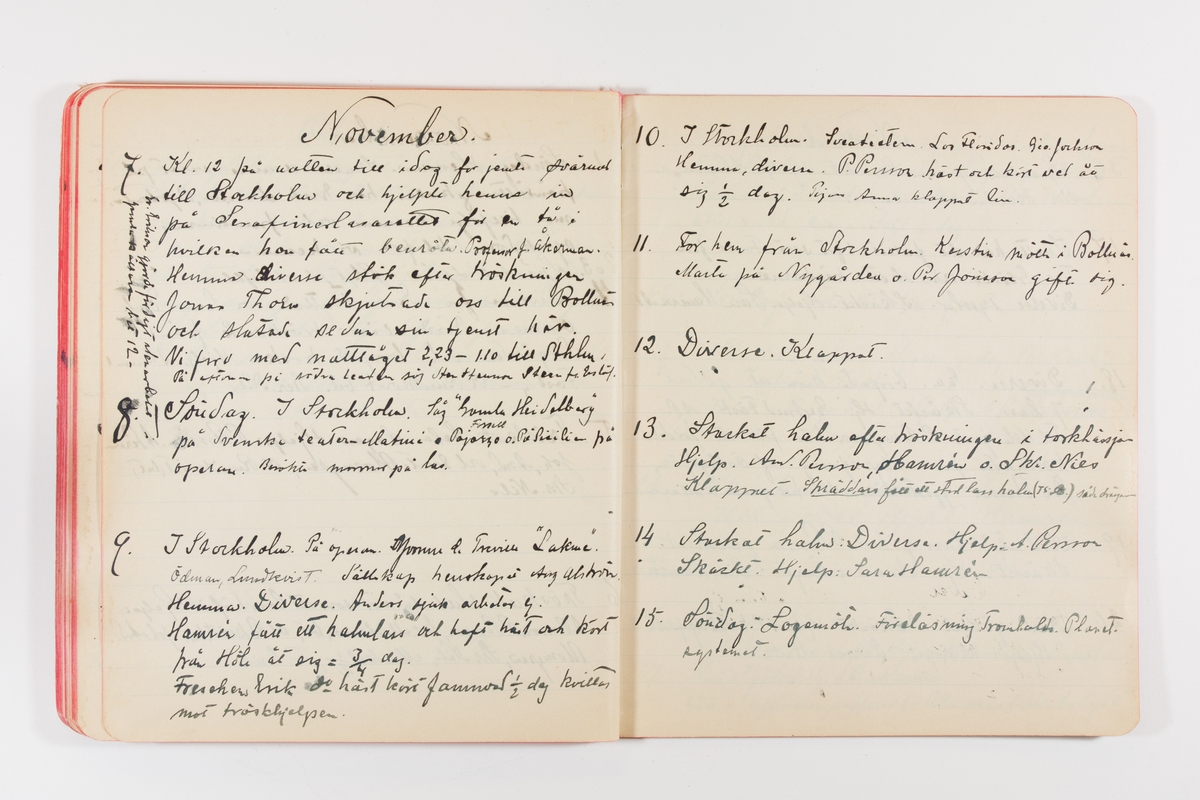 November.
7 Kl. 12 på natten till idag for jemte svärmor
till Stockholm och hjelpte henne in
på Serafimerlasarettet för en tå i
hvilken hon fått benröta. Professor J. Åkerman.
Hemma diverse stök efter tröskningen
Jonas Thorn skjutsade oss till Bollnäs
och slutade sedan sin tjenst här.
Vi foro med nattåget 2,23 – 1.10 till Sthlm.
På aftonen på södra teatern såg
8 Söndag. I Stockholm. Såg "Gamla Heidelberg"
på Svenska teatern Matiné o Pajazzo o. På Sicilien på
Forsell
operan. Besökte mormor på las.
9. I Stockholm. På operan. Yvonne d. Treville "Lakmé".
Ödman, Lundkvist. Sällskap herrskapet Aug Alström.
Hemma. Diverse. Anders sjuk arbetar ej.
Hamrén fått ett halmlass och haft häst och kört
från Höle åt sig = 3/4 dag.
Freschen Erik do häst kört famnved 1/2 dag kvittas
mot tröskhjelpen.
10. I Stockholm. Sveateatern. Los Floridos. Geo. Jackson
Hemma, diverse. P. Persson häst och kört ved åt
sig 1/2 dag. Pigan Anna klappat lin.
11. For hem från Stockholm. Kerstin mötte i Bollnäs.
Marta på Nygården o. Per Jonsson gift sig.
12. Diverse. Klappat.
13. Stackat halm efter tröskningen i torkhässjan
Hjelp. And. Persson, Hamrén o. Skr. Nils
Klappat. Skräddars fått ett stort lass halm
14 Stackat halm: Diverse. Hjelp: A. Persson
Skäckt. Hjelp: Sara Hamrén
15. Söndag. Logemöte. Föreläsning Tromholts. Planet-
systemet.